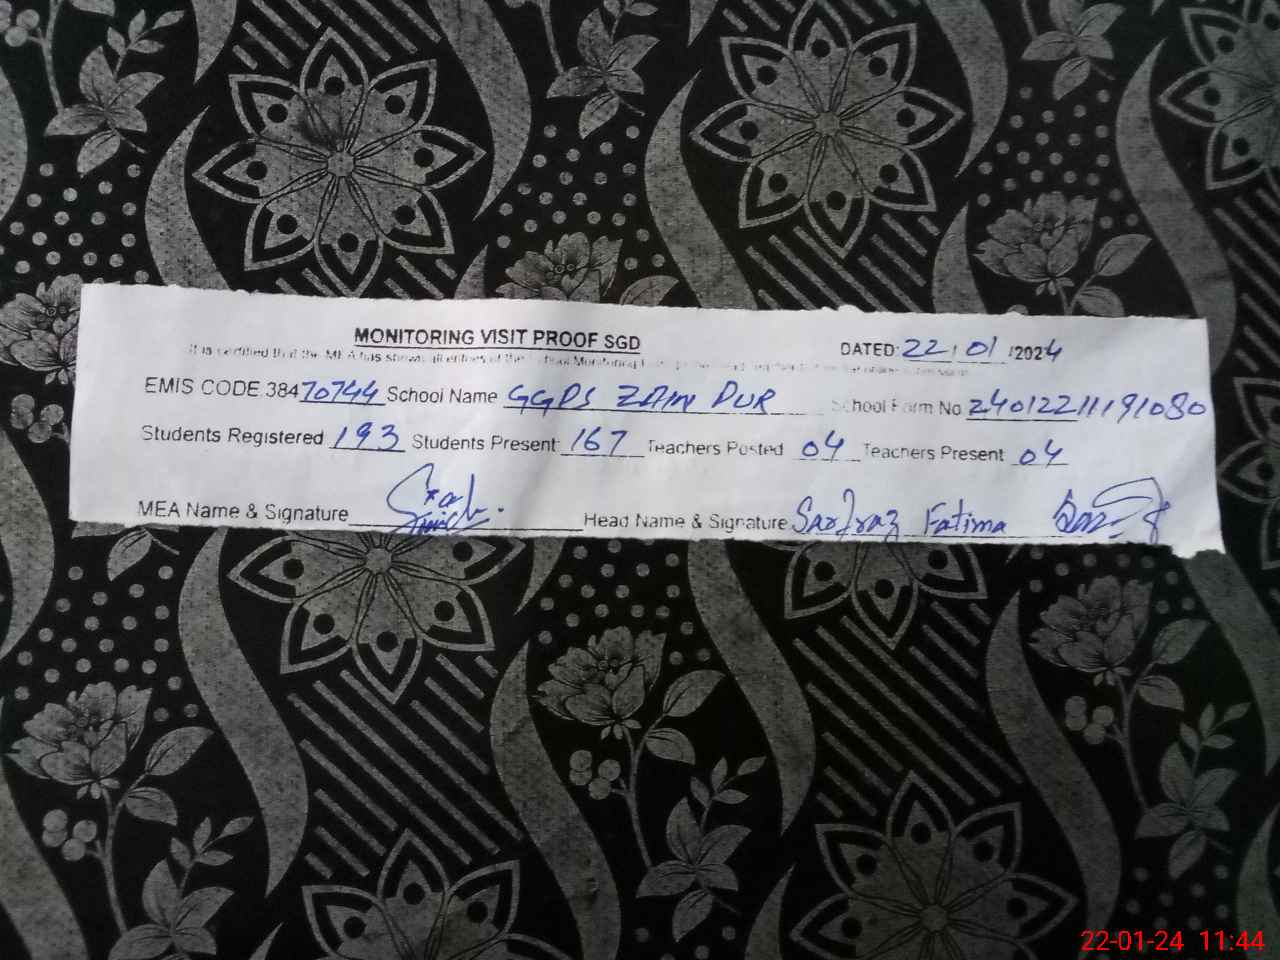 MONITORING VISIT PROOF SGD
DATED: 22/01/2024
It is certified that the MEA has shown all entries of the School Monitoring
EMIS CODE 38470744 School Name GGPS ZAIN PUR School Form No 24012211191080
Students Registered 193 Students Present: 167 Teachers Posted 04 Teachers Present 04
MEA Name & Signature Head Name & Signature Sarfraz Fatima
22-01-24 11:44